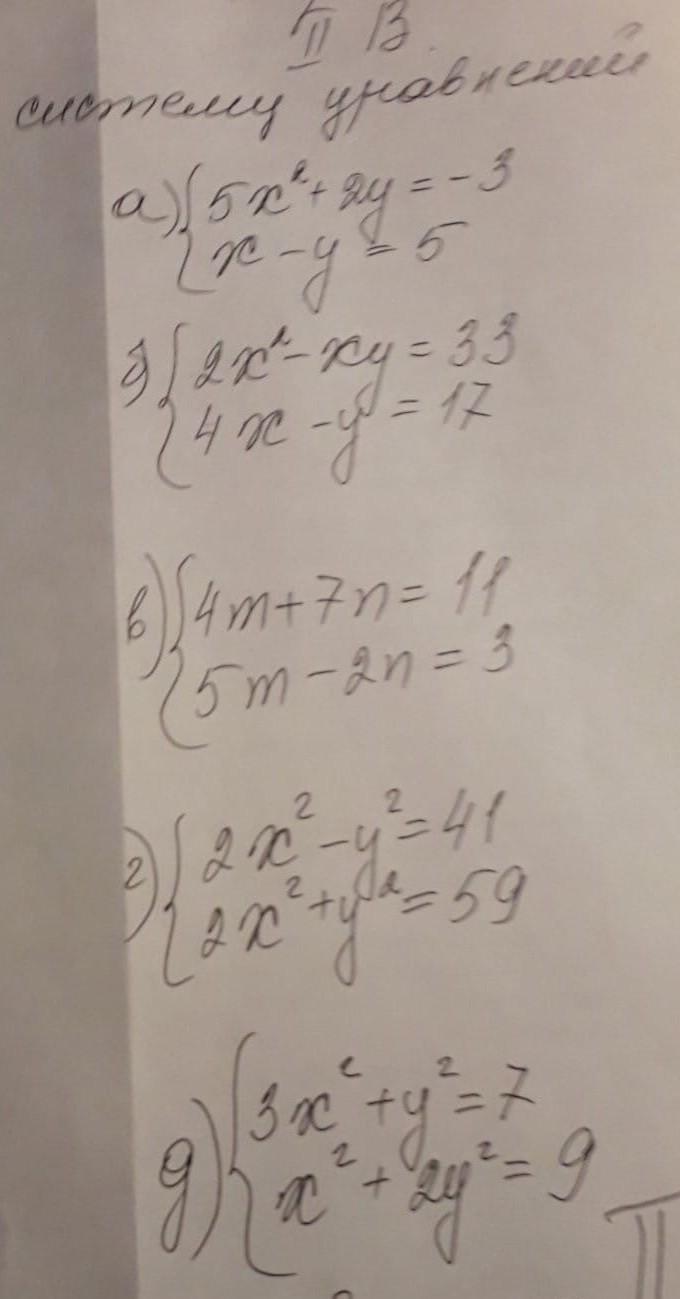 II В.
систему уравнений
а) { 5x² + 2y = -3
x - y = 5
б) { 2x² - xy = 33
4x - y = 17
в) { 4m + 7n = 11
5m - 2n = 3
г) { 2x² - y² = 41
2x² + y² = 59
д) { 3x² + y² = 7
x² + 2y² = 9
II